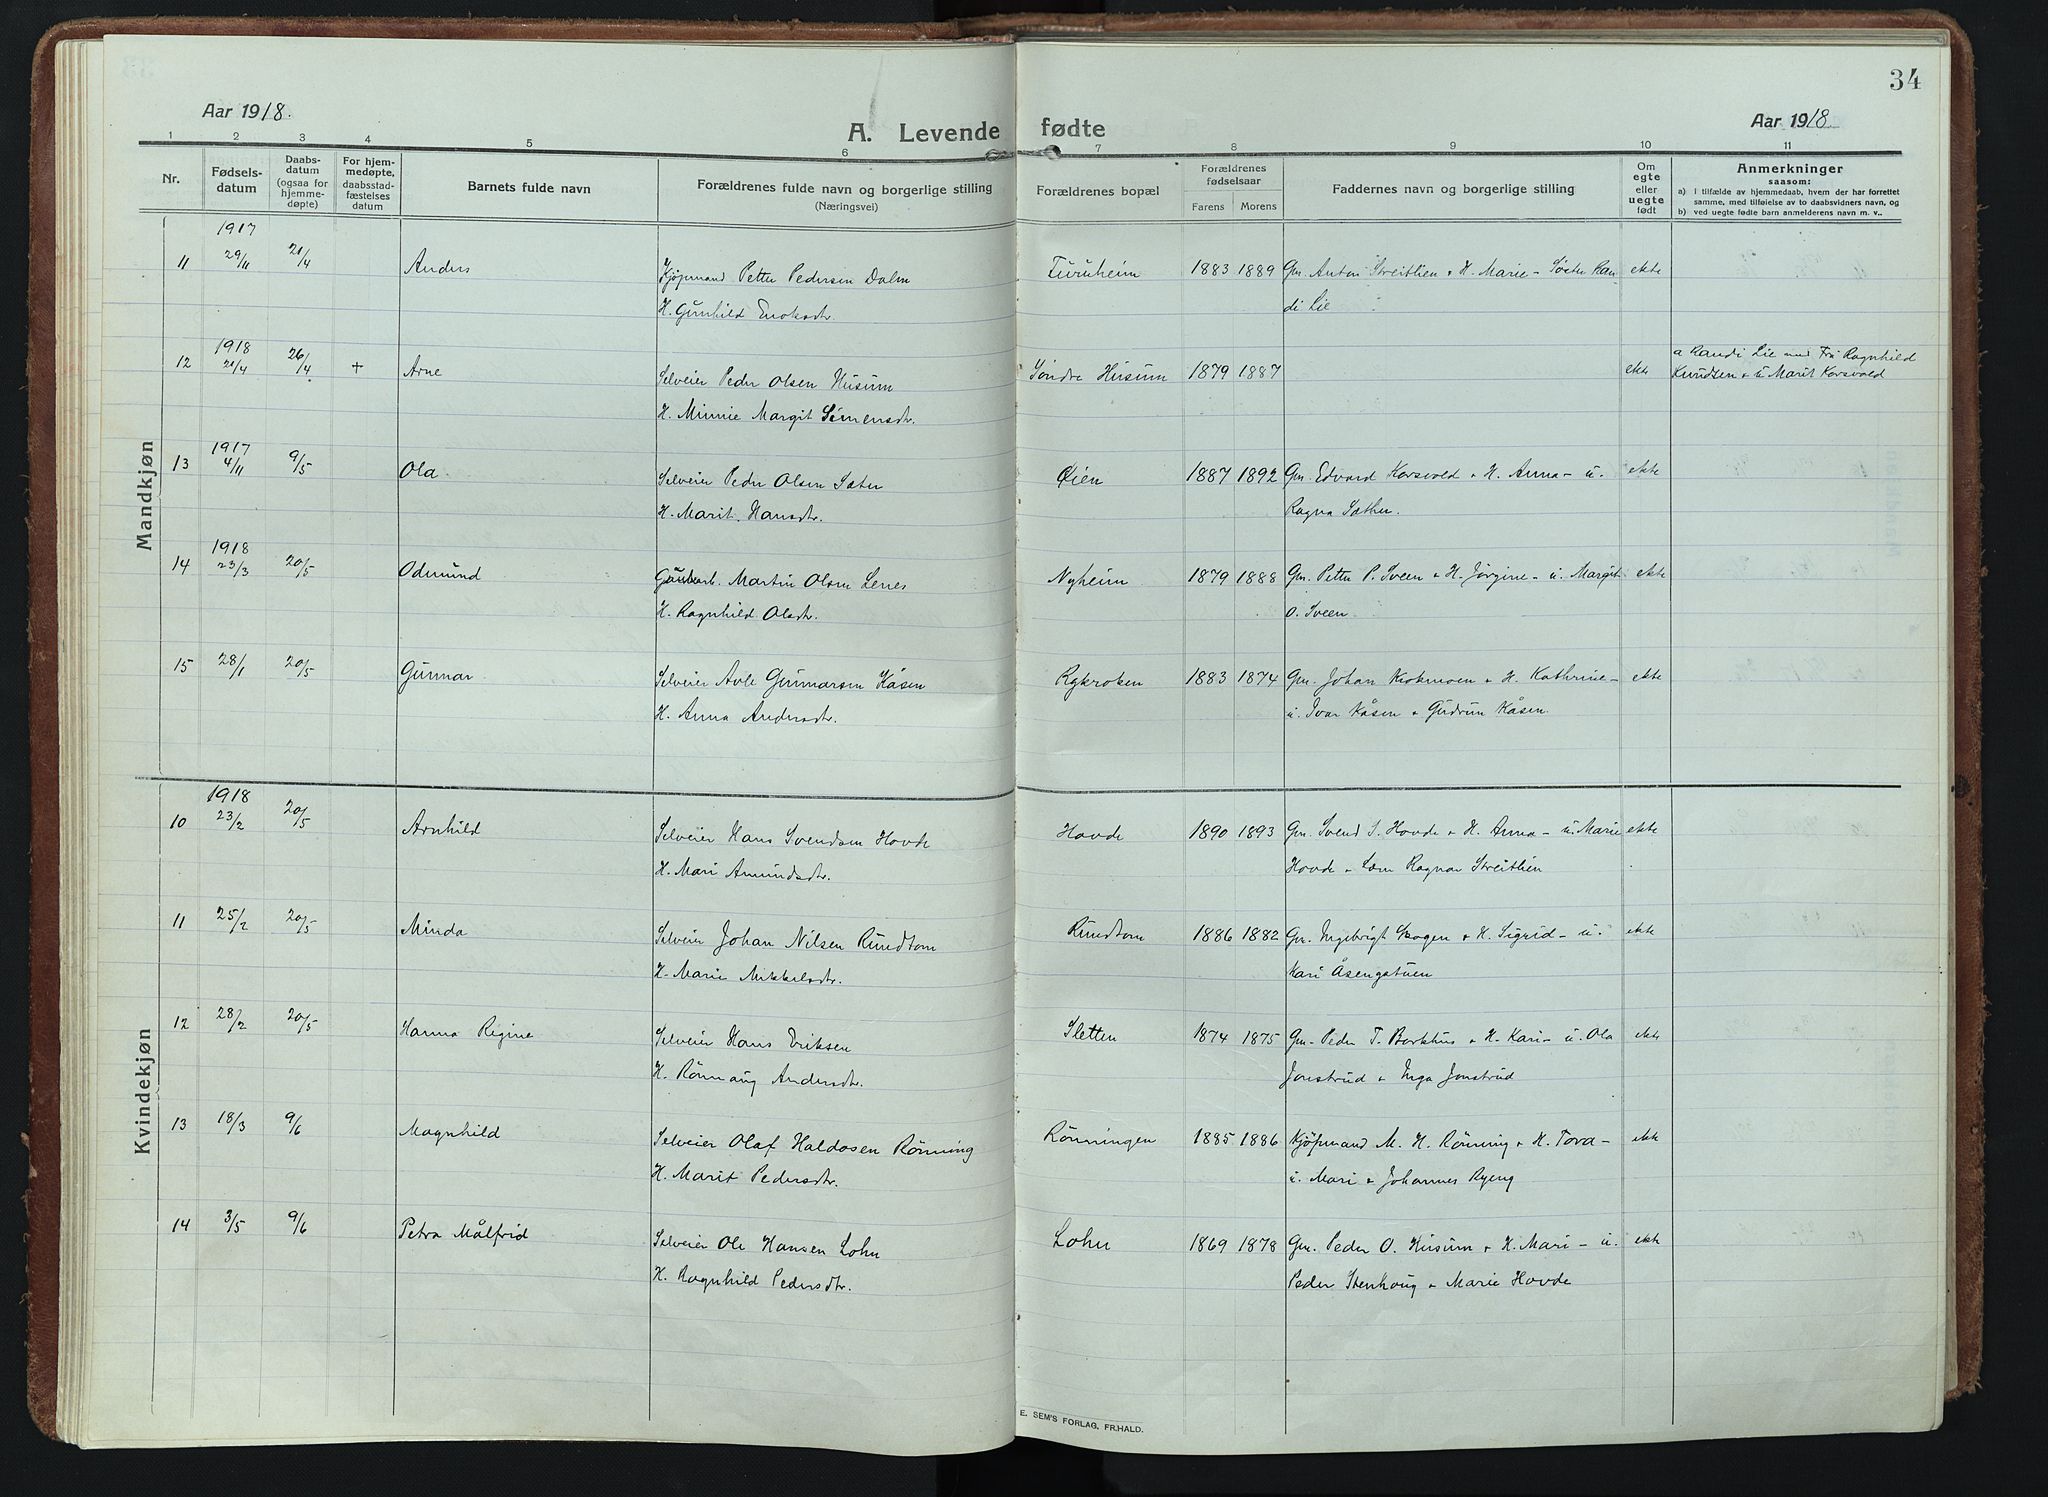 34
Aar 1918.
A. Levende fødte
Aar 1918
1 2 3 4 5 6 7 8 9 10 11
Nr.
Fødsels-
datum
Daabs-
datum
(ogsaa for
hjemme-
døpte)
For hjem-
medøpte,
daabsstad-
fæstelses
datum
Barnets fulde navn
Forældrenes fulde navn og borgerlige stilling
(Næringsvei)
Forældrenes bopæl
Forældrenes
fødselsaar
Farens Morens
Faddernes navn og borgerlige stilling
Om
egte
eller
uegte
født
Anmerkninger
saasom:
a) i tilfælde av hjemmedaab, hvem der har forrettet
samme, med tilføielse av to daabsvidners navn, og
b) ved uegte fødte barn anmelderens navn m. v..
Mandkjøn
1917
11 29/11 21/4 Anders Kjøpmand Petter Pedersen Dalen Furuheim 1883 1889 Gm. Anton Streitlien + H. Marie - Søster Ran ekte
H. Gunhild Enoksdtr. di Lie
1918
12 21/4 26/4 + Arne Selveier Peder Olsen Husum Søndre Husum 1879 1887 ekte a Randi Lie med Fru Ragnhild
Knudsen + u Marit Korsvold
H. Minnie Margit Simensdtr.
1917
13 4/11 9/5 Ola Selveier Peder Olsen Sæter Øien 1887 1892 Gm. Edvard Korsvold + H. Anna - u. ekte
H. Marit Hansdtr. Ragna Sæther.
1918
14 23/3 20/5 Odmund Martin Olsen Lenes Nyheim 1879 1888 Gm. Petter P. Sveen + H. Jørgine - u. Margit ekte
H. Ragnhild Olsdtr. O. Sveen
15 28/1 20/5 Gunnar Selveier Avle Gunnarsen Kåsen Rykroken 1883 1874 Gm. Johan Krokmoen + H. Kathrine - ekte
H. Anna Andersdtr. u. Ivar Kåsen + Gudrun Kåsen.
Kvindekjøn
1918
10 23/2 20/5 Arnhild Selveier Hans Svendsen Hovde Hovde 1890 1893 Gm. Svend S. Hovde + H. Anna - u. Marie ekte
H. Mari Amundsdtr. Hovde + Ragnar Streitlien
11 25/2 20/5 Minda Selveier Johan Nilsen Rundtom Rundtom 1886 1882 Gm. Ingebrigt Skogen + H. Sigrid - u. ekte
H. Marie Mikkelsdtr. Kari Åsengstuen
12 28/2 20/5 Hanna Regine Selveier Hans Eriksen Sletten 1874 1875 Gm. Peder T. Borkhus + H. Kari - u. Ola ekte
H. Rønnaug Andersdtr. Jonstrud + Inga Jonstrud
13 18/3 9/6 Magnhild Selveier Olaf Haldosen Rønning Rønningen 1885 1886 Kjøpmand M. H. Rønning + H. Tora - ekte
H. Marit Pedersdtr. u. Mari + Johannes Ryeng
14 3/5 9/6 Petra Målfrid Selveier Ole Hansen Lohn Lohn 1869 1878 Gm. Peder O. Husum + H. Mari - u. ekte
H. Ragnhild Pedersdtr. Peder Stenhaug + Marie Hovde
E. SEM'S FORLAG. FR.HALD.